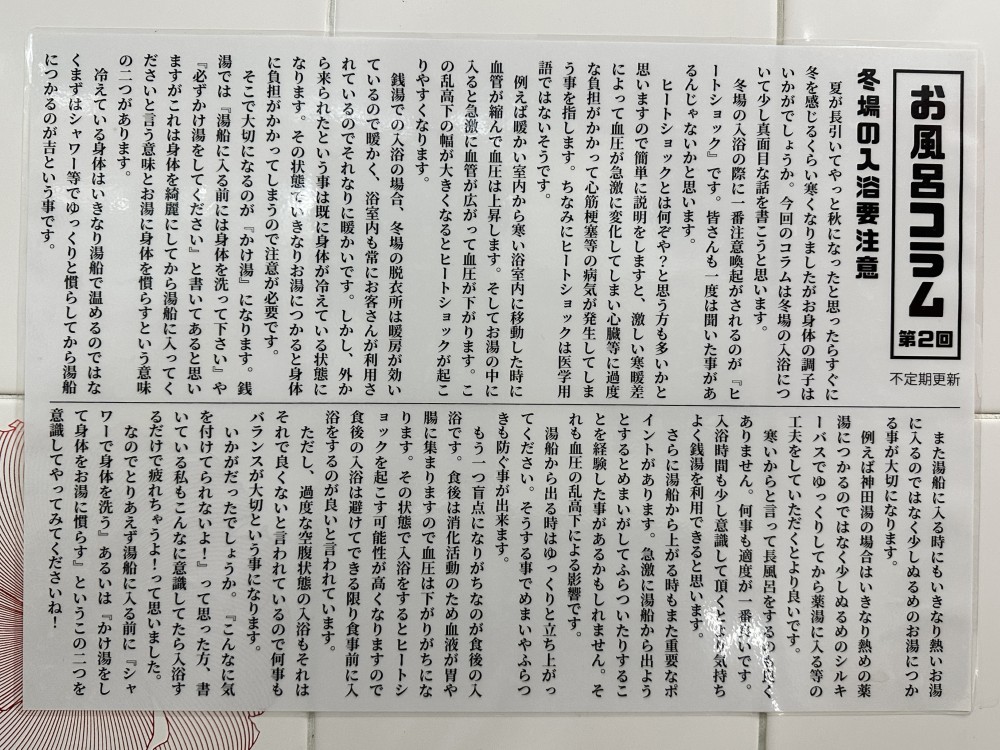 お風呂コラム
第2回
不定期更新
冬場の入浴要注意
夏が長引いてやっと秋になったと思ったらすぐに
冬を感じるくらい寒くなりましたがお身体の調子は
いかがでしょうか。今回のコラムは冬場の入浴につ
いて少し真面目な話を書こうと思います。
冬場の入浴の際に一番注意喚起がされるのが『ヒ
ートショック』です。皆さんも一度は聞いた事があ
るんじゃないかと思います。
ヒートショックとは何ぞや？と思う方も多いかと
思いますので簡単に説明をしますと、激しい寒暖差
によって血圧が急激に変化してしまい心臓等に過度
な負担がかかって心筋梗塞等の病気が発生してしま
う事を指します。ちなみにヒートショックは医学用
語ではないそうです。
例えば暖かい室内から寒い浴室内に移動した時に
血管が縮んで血圧は上昇します。そしてお湯の中に
入ると急激に血管が広がって血圧が下がります。こ
の乱高下の幅が大きくなるとヒートショックが起こ
りやすくなります。
銭湯での入浴の場合、冬場の脱衣所は暖房が効い
ているので暖かく、浴室内も常にお客さんが利用さ
れているのでそれなりに暖かいです。しかし、外か
ら来られたという事は既に身体が冷えている状態に
なります。その状態でいきなりお湯につかると身体
に負担がかかってしまうので注意が必要です。
そこで大切になるのが『かけ湯』になります。銭
湯では『湯船に入る前には身体を洗って下さい』や
『必ずかけ湯をしてください』と書いてあると思い
ますがこれは身体を綺麗にしてから湯船に入ってく
ださいと言う意味とお湯に身体を慣らすという意味
の二つがあります。
冷えている身体はいきなり湯船で温めるのではな
くまずはシャワー等でゆっくりと慣らしてから湯船
につかるのが吉という事です。
また湯船に入る時にもいきなり熱いお湯
に入るのではなく少しぬるめのお湯につか
る事が大切になります。
例えば神田湯の場合はいきなり熱めの薬
湯につかるのではなく少しぬるめのシルキ
ーバスでゆっくりしてから薬湯に入る等の
工夫をしていただくとより良いです。
寒いからと言って長風呂をするのも良く
ありません。何事も適度が一番良いです。
入浴時間も少し意識して頂くとより気持ち
よく銭湯を利用できると思います。
さらに湯船から上がる時もまた重要なポ
イントがあります。急激に湯船から出よう
とするとめまいがしてふらついたりするこ
とを経験した事があるかもしれません。そ
れも血圧の乱高下による影響です。
湯船から出る時はゆっくりと立ち上がっ
てください。そうする事でめまいやふらつ
きも防ぐ事が出来ます。
もう一つ盲点になりがちなのが食後の入
浴です。食後は消化活動のため血液が胃や
腸に集まりますので血圧は下がりがちにな
ります。その状態で入浴をするとヒートシ
ョックを起こす可能性が高くなりますので
食後の入浴は避けてできる限り食事前に入
浴をするのが良いと言われています。
ただし、過度な空腹状態の入浴もそれは
それで良くないと言われているので何事も
バランスが大切という事になります。
いかがだったでしょうか。『こんなに気
を付けてられないよ！』って思った方、書
いている私もこんなに意識してたら入浴す
るだけで疲れちゃうよ！って思いました。
なのでとりあえず湯船に入る前に『シャ
ワーで身体を洗う』あるいは『かけ湯をし
て身体をお湯に慣らす』というこの二つを
意識してやってみてくださいね！